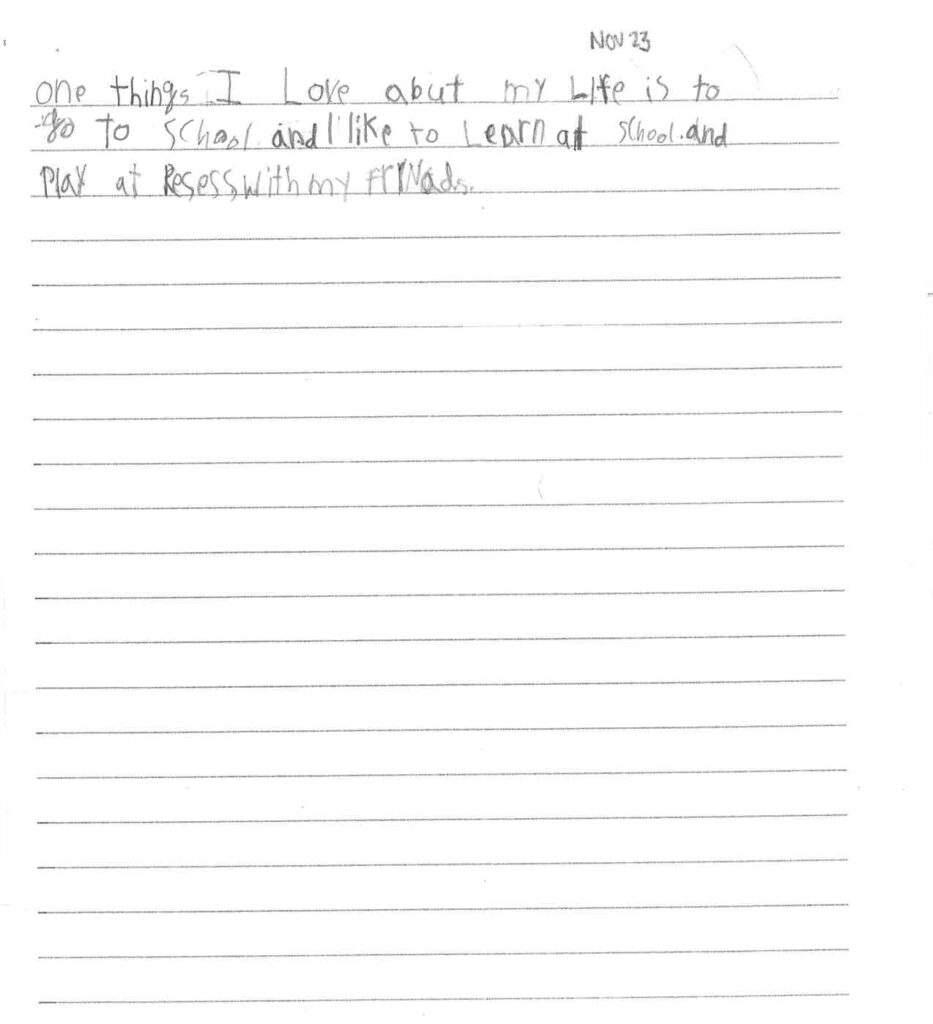 Nov 23
one things I Love abut my Life is to
go To school and I like to Learn at school. and
Play at Resess with my FRINads.